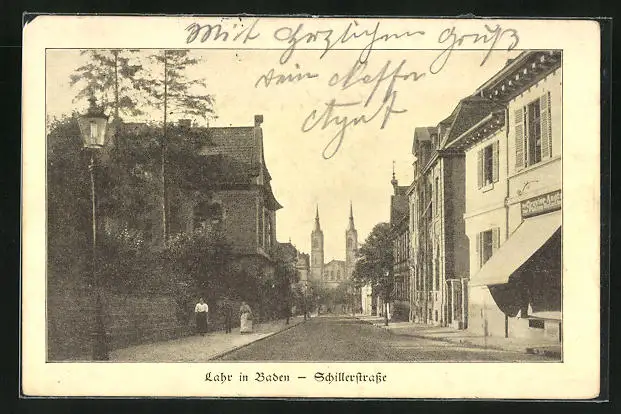 Mit herzlichem Gruß
dein Neffe
August
Lahr in Baden — Schillerstraße